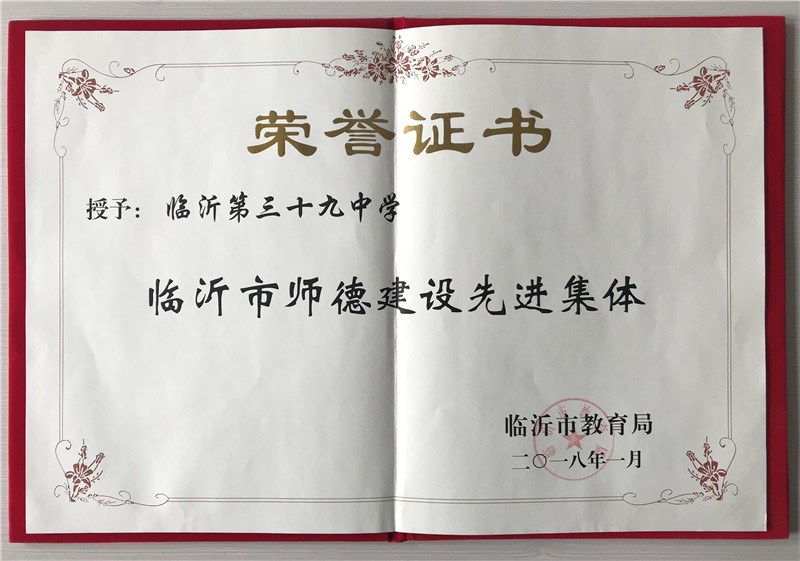 荣誉证书
授予：临沂第三十九中学
临沂市师德建设先进集体
临沂市教育局
二〇一八年一月